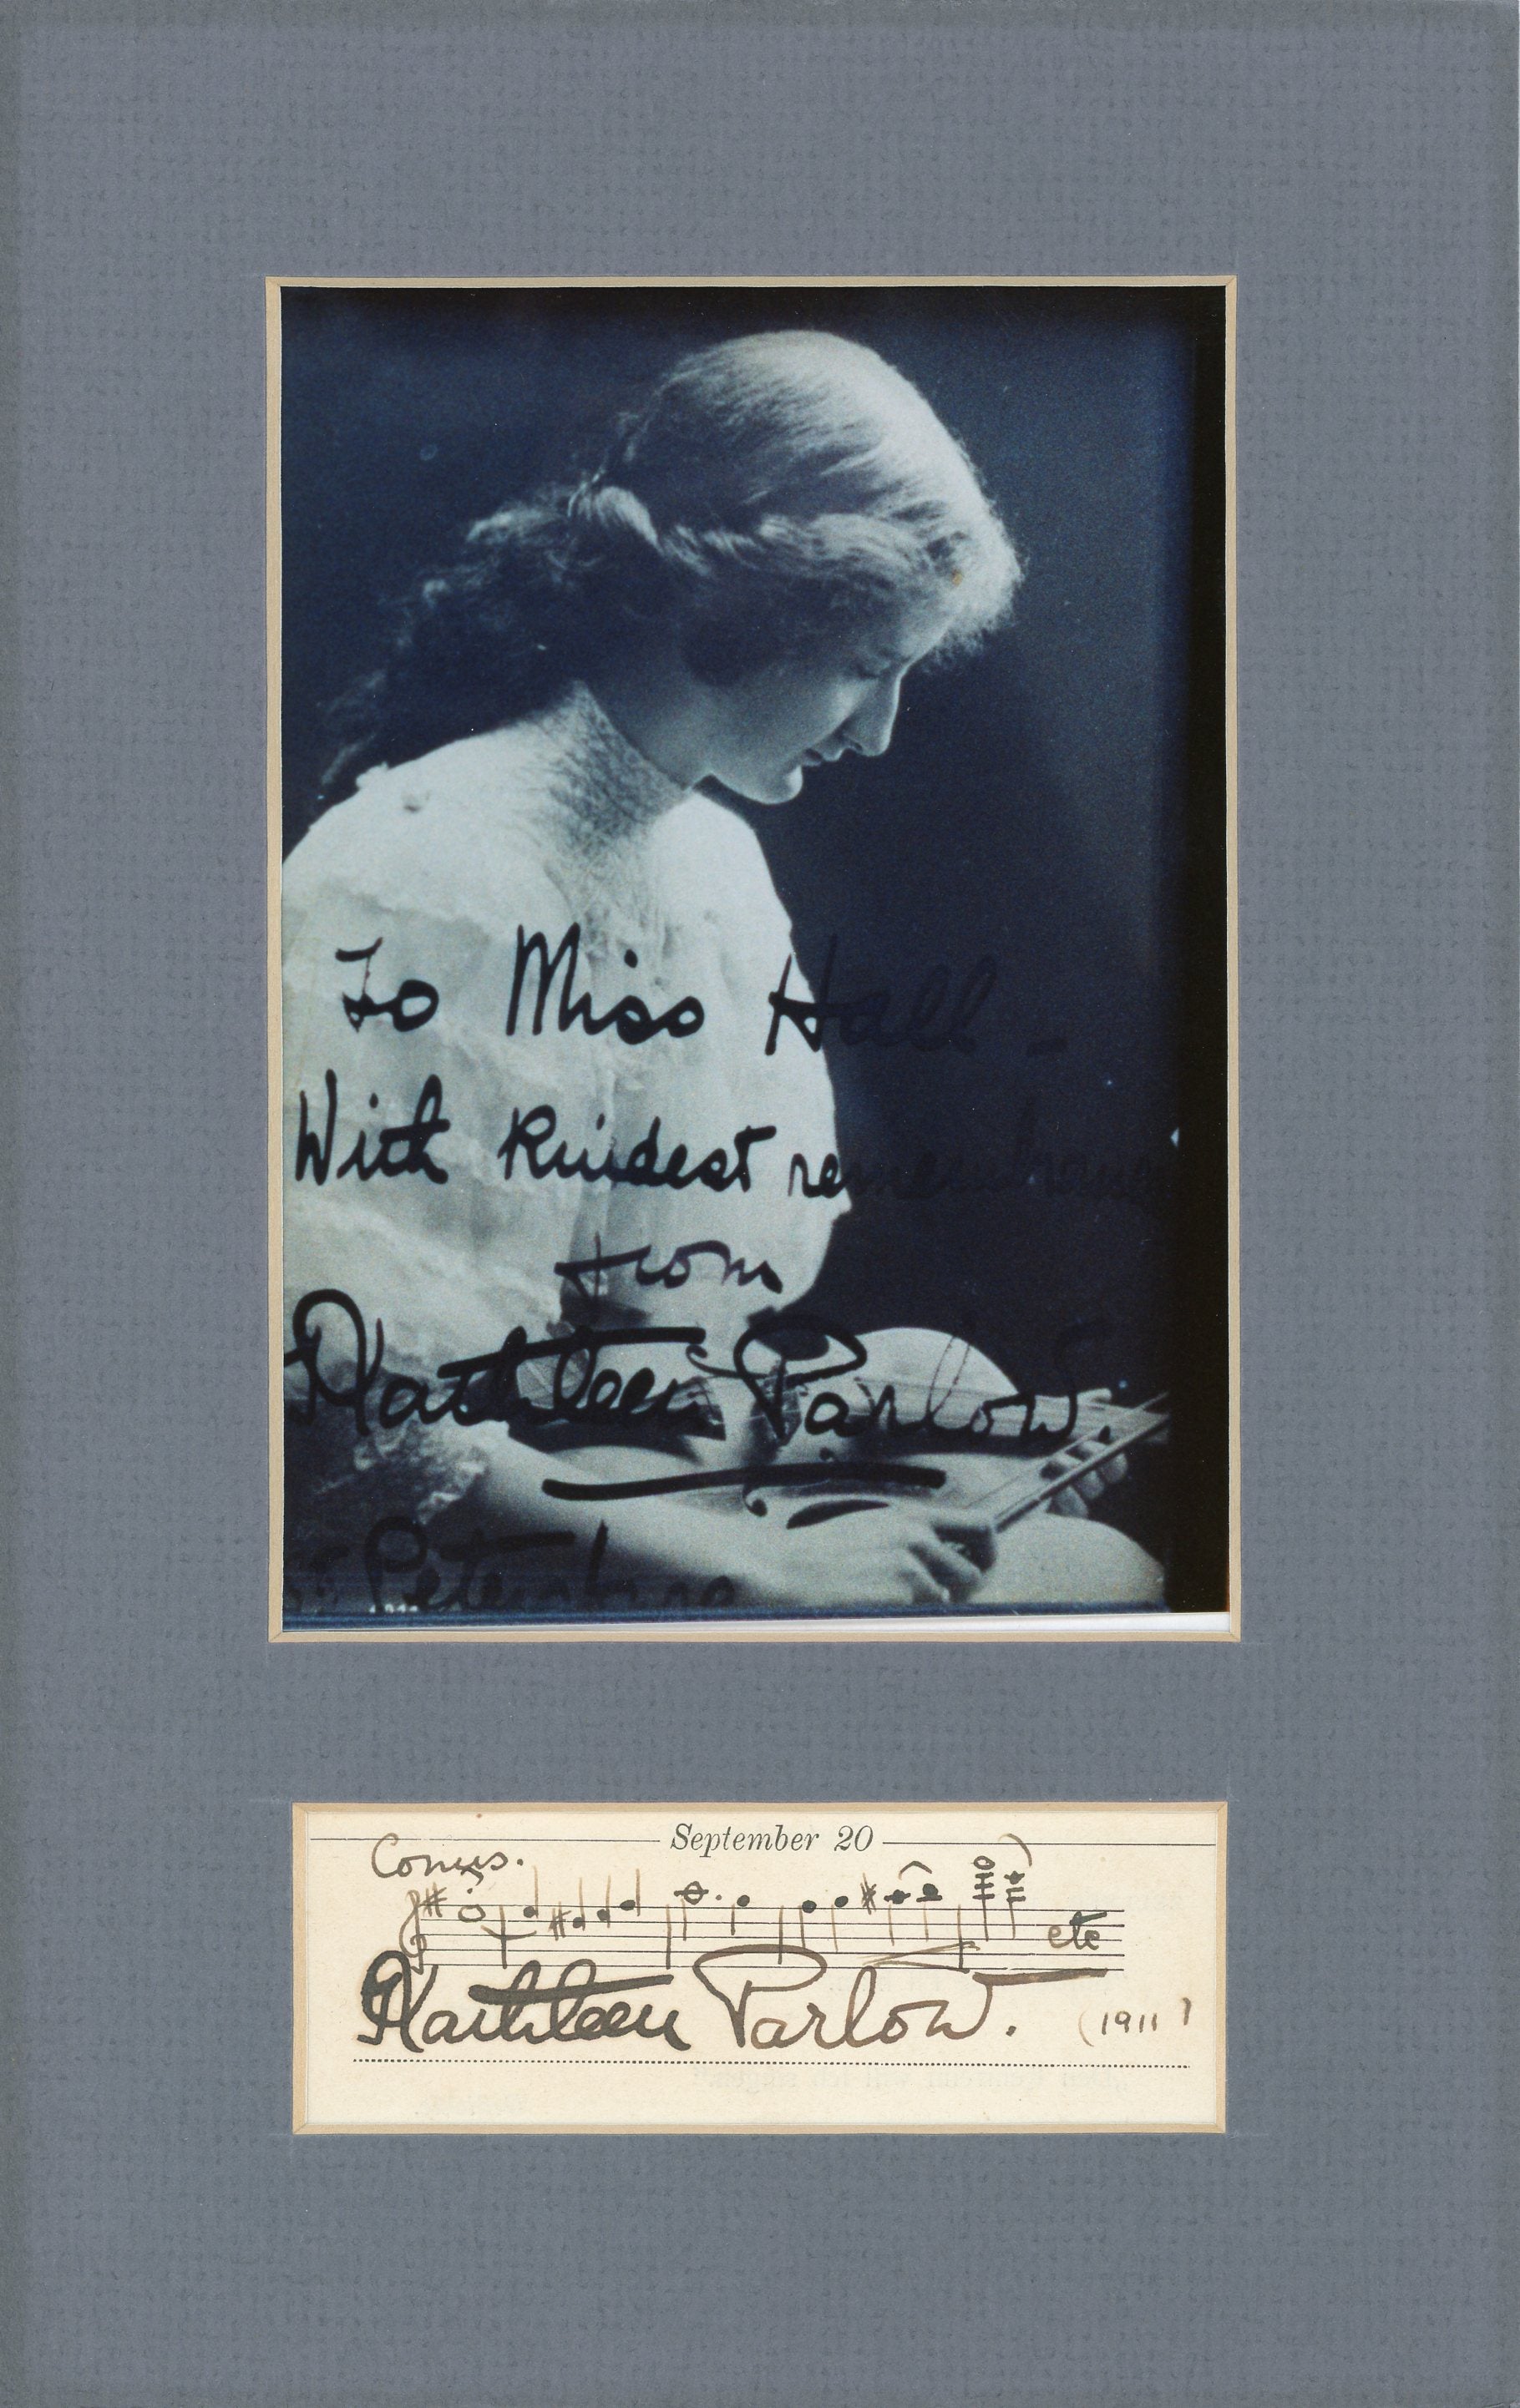 To Miss Hall -
With Kindest remembrance
from
Kathleen Parlow.
St Petersburg
September 20
Conus.
etc
Kathleen Parlow.
(1911)